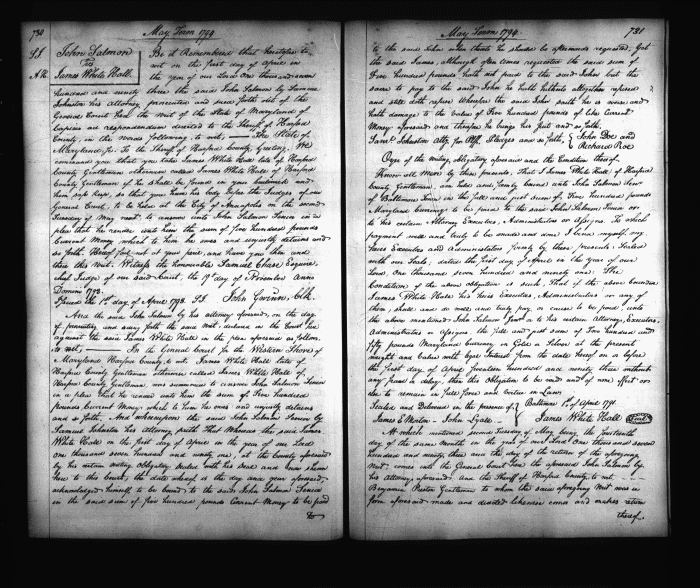 730 May Term 1794
S.J. John Salmon
vs
A.K. James White Hall.
Be it Remembered that heretofore to
wit on the first day of April in
the year of our Lord One thousand seven
hundred and ninety three the said John Salmon by Samuel
Johnston his attorney prosecuted and sued forth out of the
General Court here the writ of the State of Maryland of
Capias ad respondendum directed to the Sheriff of Harford
County, in the words following, to wit, The State of
Maryland, to the Sheriff of Harford County, Greeting. We
command you that you take James White Hall late of Harford
County Gentleman otherwise called James White Hall of Harford
County Gentleman if he shall be found in your bailiwick and
him safe keep, so that you have his body before the Judges of our
General Court, to be held at the City of Annapolis on the second
Tuesday of May next to answer unto John Salmon Senior in a
plea that he render unto him the sum of five hundred pounds
Current Money which to him he owes and unjustly detains and
so forth. Hereof fail not at your peril, and have you then and
there this writ. Witness the Honourable Samuel Chase Esquire,
chief Judge of our said Court, the 19th day of November Anno
Domini 1792.
Issued the 1st day of April 1793. John Gwinn, Clk.
And the said John Salmon by his attorney aforesaid, on the day
of prosecuting and suing forth the said writ, declared in the Court here
against the said James White Hall in the plea aforesaid as follows,
to wit, In the General Court for the Western Shore of
Maryland Harford County, to wit, James White Hall late of
Harford County Gentleman otherwise called James White Hall of
Harford County Gentleman, was summoned to answer John Salmon Senior
in a plea that he render unto him the sum of Five hundred
pounds Current Money which to him he owes and unjustly detains
and so forth. And whereupon the said John Salmon Senior by
Samuel Johnston his Attorney saith That Whereas the said James
White Hall on the first day of April in the year of our Lord
One thousand seven hundred and ninety one, at the County aforesaid
by his certain writing Obligatory sealed with his seal and now shown
here to this Court, the date whereof is the day and year aforesaid,
acknowledged himself to be bound to the said John Salmon Senior
in the said sum of five hundred pounds Current Money to be paid
to
May Term 1794. 731
to the said John when thereto he should be afterwards requested, Yet
the said James, although oftentimes requested the said sum of
Five hundred pounds hath not paid to the said John but the
same to pay to the said John he hath hitherto altogether refused
and still doth refuse Wherefore the said John saith he is worse and
hath damage to the value of Five hundred pounds of like Current
Money aforesaid and therefore he brings his suit and so forth.
Saml Johnston Atty. for Plff. Pledges and so forth, John Doe and
Richard Roe
Oyer of the writing obligatory aforesaid and the Condition thereof.
Know all Men by these presents, That I James White Hall of Harford
County Gentleman, am held and firmly bound unto John Salmon Senr
of Baltimore Town in the full and just sum of Five hundred pounds
Maryland Currency to be paid to the said John Salmon Senior or
to his certain Attorney Executors Administrators or Assigns. To which
payment well and truly to be made and done I bind myself, my
heirs Executors and Administrators firmly by these presents, Sealed
with our Seals, dated the first day of April in the year of our
Lord, One thousand seven hundred and ninety one. The
Condition of the above obligation is such, That if the above bounden
James White Hall his heirs Executors, Administrators or any of
them, shall and do well and truly pay or cause to be paid, unto
the above mentioned John Salmon Senr or to his certain Attorney, Executors,
Administrators or Assigns the full and just sum of Two hundred and
fifty pounds Maryland Currency in Gold or Silver at the present
weight and value with legal Interest from the date hereof on or before
the first day of April Seventeen hundred and ninety three without
any fraud or delay, then this Obligation to be void and of none effect or
else to remain in full force and virtue in Law.
Sealed and Delivered in the presence of Baltimore 1st of April 1791.
John Lyall James White Hall
At which mentioned second Tuesday of May being the fourteenth
day of the same month in the year of our Lord One thousand seven
hundred and ninety three and the day of the return of the aforegoing
writ, comes into the General Court here the aforesaid John Salmon by
his attorney aforesaid. And the Sheriff of Harford County to wit,
Benjamin Preston Gentleman to whom the said aforegoing writ was in
form aforesaid made and directed likewise comes and makes return
thereof